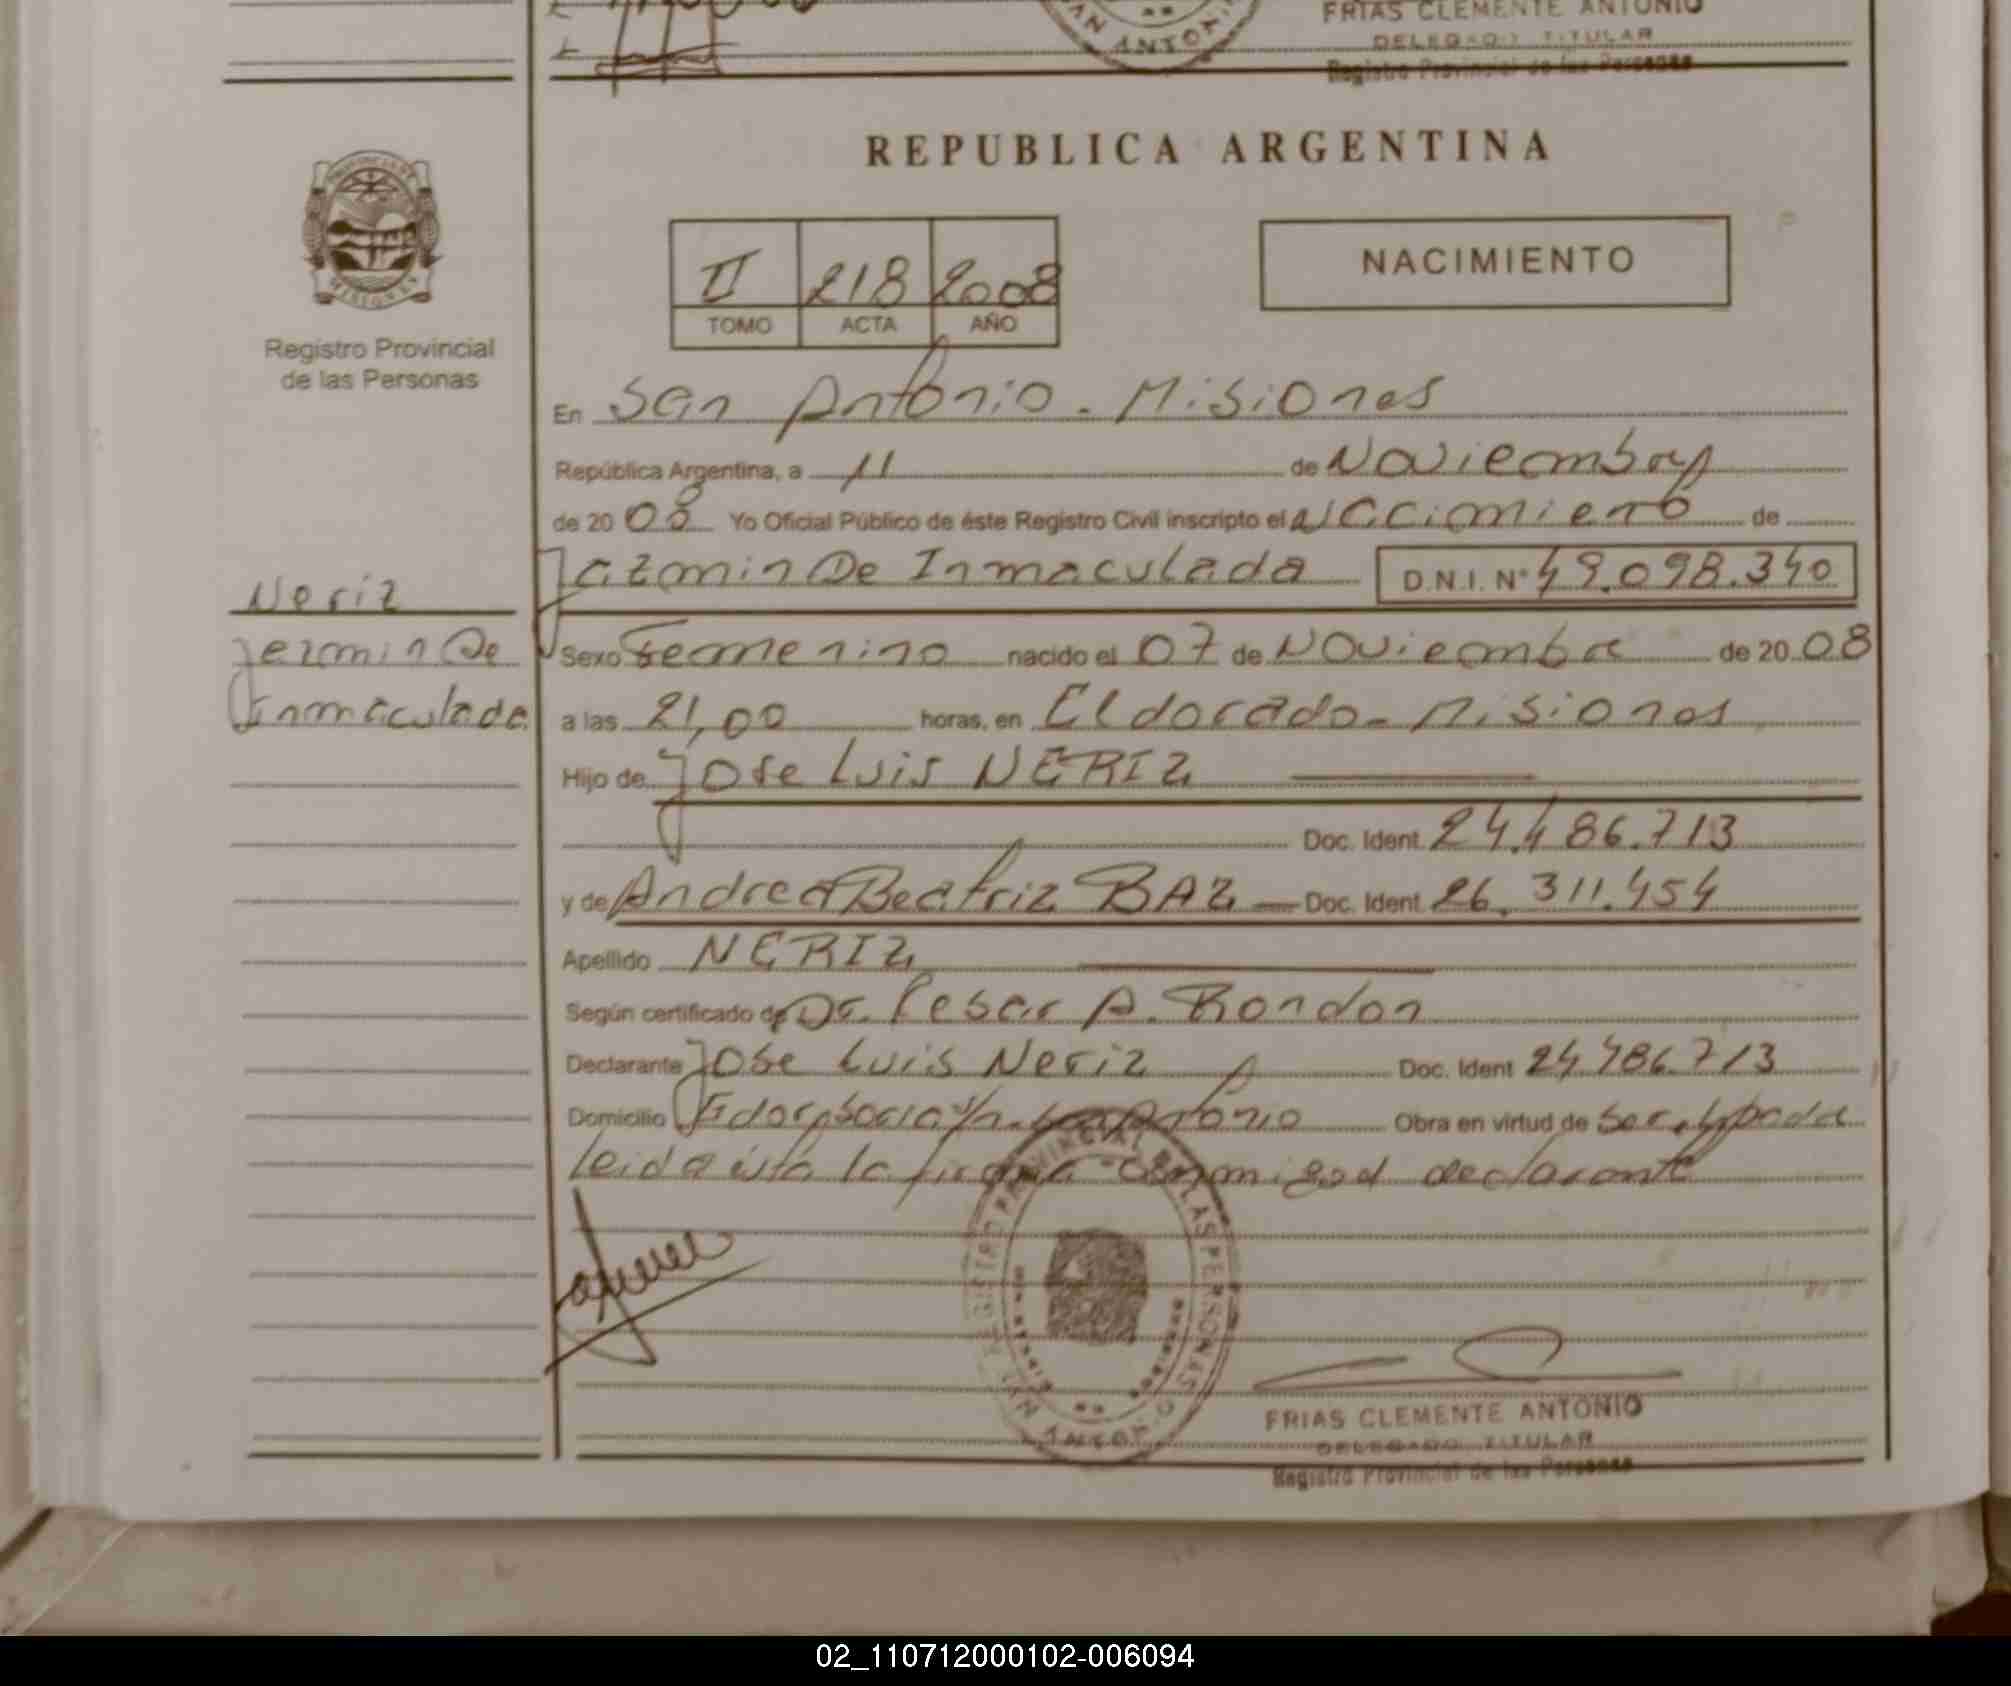 SAN ANTONIO
FRIAS CLEMENTE ANTONIO
DELEGADO TITULAR
Registro Provincial de las Personas
REPUBLICA ARGENTINA
PROVINCIA DE MISIONES
Registro Provincial
de las Personas
II 218 2008
TOMO ACTA AÑO
NACIMIENTO
En San Antonio - Misiones
República Argentina, a 11 de Noviembre
de 2008 Yo Oficial Público de éste Registro Civil inscripto el Nacimiento de
Jazmin De Inmaculada D.N.I. N° 49.098.340
Neriz
Jezmin De
Inmaculada
Sexo Femenino nacido el 07 de Noviembre de 2008
a las 21,00 horas, en Eldorado - Misiones
Hijo de Jose Luis NERIZ
Doc. Ident. 24.486.713
y de Andrea Beatriz BAZ Doc. Ident. 26.311.454
Apellido NERIZ
Según certificado de Dr. Cesar A. Rondon
Declarante Jose Luis Neriz Doc. Ident 24.486.713
Domicilio Antonio Obra en virtud de
leida esta la firma conmigo el declarante
REGISTRO PROVINCIAL DE LAS PERSONAS
SAN ANTONIO
FRIAS CLEMENTE ANTONIO
DELEGADO TITULAR
Registro Provincial de las Personas
02_110712000102-006094